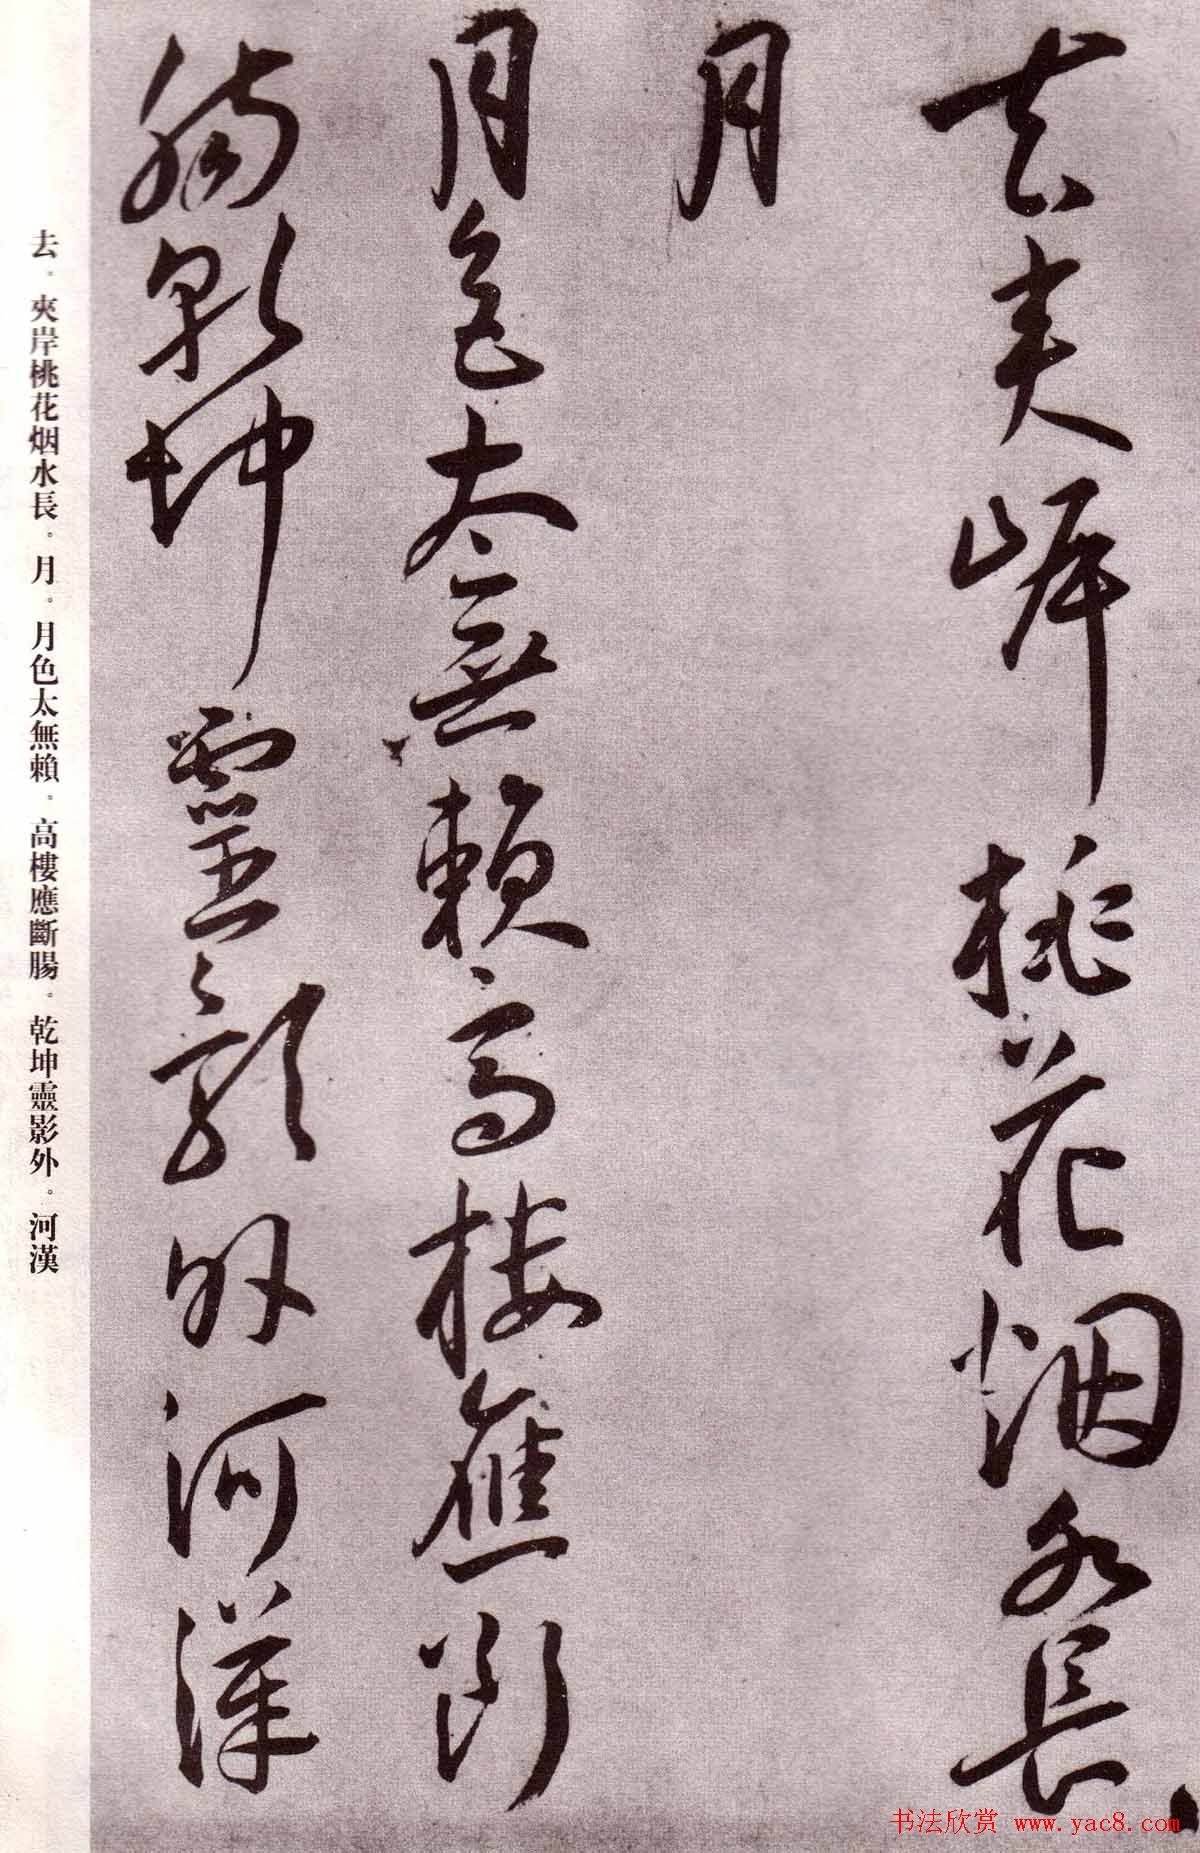 去夾岸桃花烟水長
月
月色太無賴高樓應斷
腸乾坤靈影外河漢
去。夾岸桃花烟水長。月。月色太無賴。高樓應斷腸。乾坤靈影外。河漢
书法欣赏 www.yac8.com